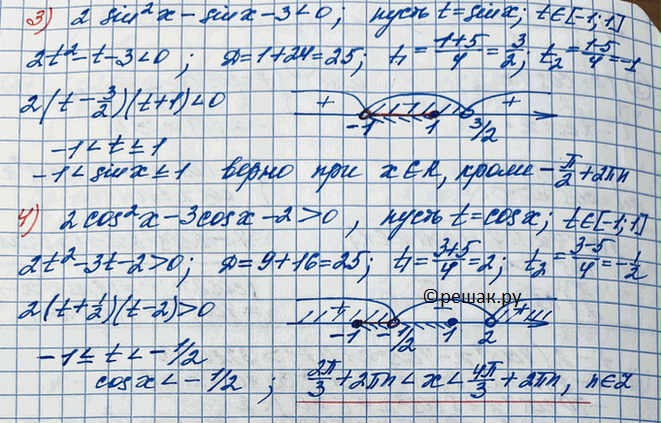 3) 2 sin²x - sinx - 3 < 0; пусть t = sinx; t∈[-1;1]
2t² - t - 3 < 0; D = 1+24 = 25; t₁ = (1+5)/4 = 3/2; t₂ = (1-5)/4 = -1
2(t - 3/2)(t+1) < 0
+ - +
-1 1 3/2
-1 < t ≤ 1
-1 < sinx ≤ 1 верно при x∈R, кроме -π/2 + 2πn
4) 2 cos²x - 3cosx - 2 > 0, пусть t = cosx; t∈[-1;1]
2t² - 3t - 2 > 0; D = 9+16 = 25; t₁ = (3+5)/4 = 2; t₂ = (3-5)/4 = -1/2
2(t + 1/2)(t - 2) > 0
©решак.ру
+ - +
-1 -1/2 1 2
-1 ≤ t < -1/2
cosx < -1/2; 2π/3 + 2πn < x < 4π/3 + 2πn, n∈Z